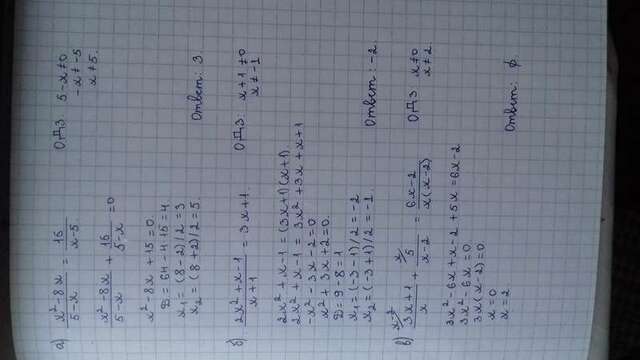 а) (x² - 8x)/(5 - x) = 15/(x - 5) ОДЗ 5 - x ≠ 0
-x ≠ -5
x ≠ 5.
(x² - 8x)/(5 - x) + 15/(5 - x) = 0
x² - 8x + 15 = 0.
D = 64 - 4·15 = 4
x₁ = (8 - 2)/2 = 3
x₂ = (8 + 2)/2 = 5. Ответ: 3.
б) (2x² + x - 1)/(x + 1) = 3x + 1. ОДЗ: x + 1 ≠ 0
x ≠ -1
2x² + x - 1 = (3x + 1)(x + 1).
2x² + x - 1 = 3x² + 3x + x + 1
-x² - 3x - 2 = 0
x² + 3x + 2 = 0.
D = 9 - 8 = 1
x₁ = (-3 - 1)/2 = -2
x₂ = (-3 + 1)/2 = -1. Ответ: -2.
x-2/ x/
в) (3x + 1)/x + 5/(x - 2) = (6x - 2)/(x(x - 2)) ОДЗ x ≠ 0
x ≠ 2
3x² - 6x + x - 2 + 5x = 6x - 2
3x² - 6x = 0
3x(x - 2) = 0
x = 0
x = 2. Ответ: ∅.